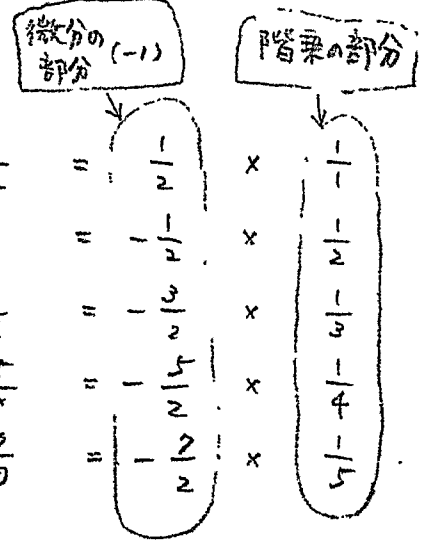 微分の
部分 (-1)
階乗の部分
= 1/2 × 1/1
= - 1/2 × 1/2
= - 3/2 × 1/3
= - 5/2 × 1/4
= - 7/2 × 1/5